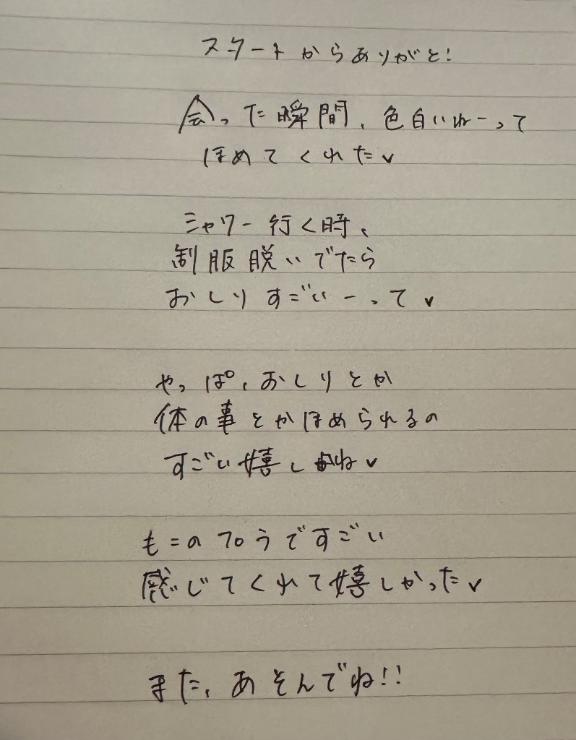 スタートからありがと!
会った瞬間、色白いねーって
ほめてくれた✓
シャワー行く時、
制服脱いでたら
おしりすごいーって✓
やっぱ、おしりとか
体の事とかほめられるの
すごい嬉しいね✓
もこのプロうですごい
感じてくれて嬉しかった✓
また、あそんでね!!